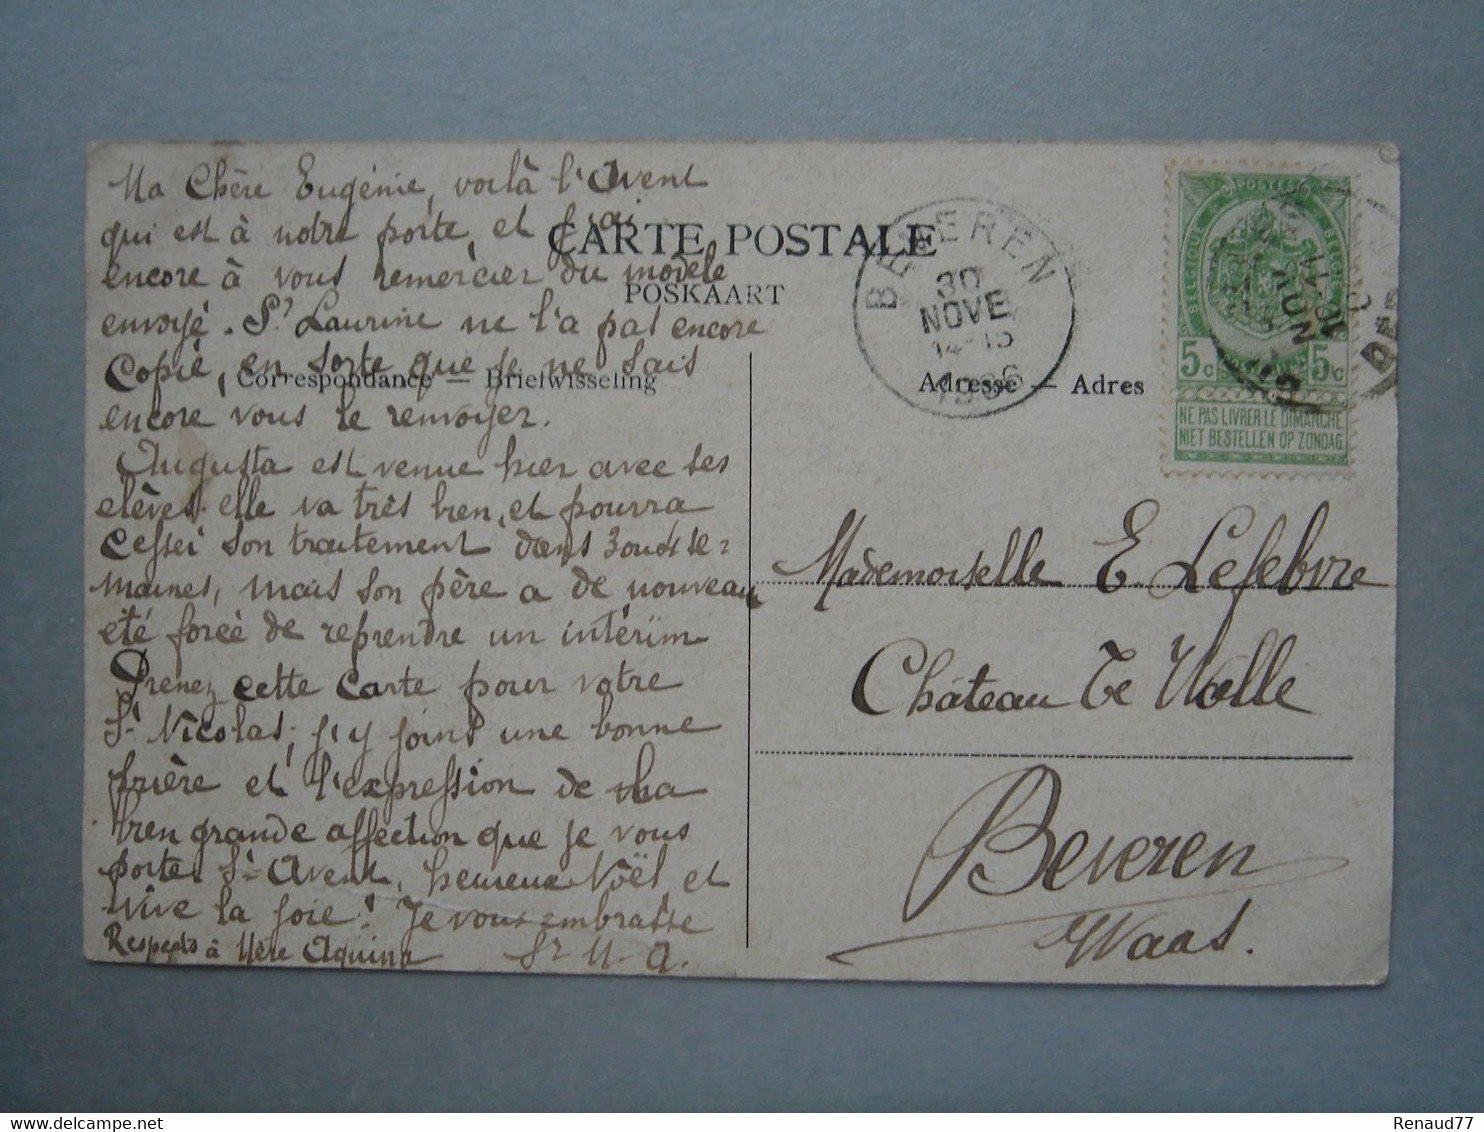 Ma Chère Eugénie, voilà l'Avent
qui est à notre porte, et j'ai
encore à vous remercier du modèle
envoyé. Sr Laurine ne l'a pas encore
Copié, en sorte que je ne sais
encore vous le renvoyer.
Augusta est venue hier avec ses
elèves elle va très bien, et pourra
cesser son traitement dans 3 ou 4 se=
maines, mais son père a de nouveau
été forcé de reprendre un intérim
Prenez cette carte pour votre
St Nicolas, j'y joins une bonne
prière et l'expression de ma
bien grande affection que je vous
porte. St Avent, heureux Noël, et
vive la joie! Je vous embrasse
Respects à Mère Aquina Sr M. A.
CARTE POSTALE
POSKAART
Correspondance — Briefwisseling
Adresse — Adres
BEVEREN
30
NOVE
14-15
1906
POSTES
BELGIQUE
BELGIË
5c 5c
NE PAS LIVRER LE DIMANCHE
NIET BESTELLEN OP ZONDAG
Mademoiselle E. Lefebvre
Château Te Walle
Beveren
Waas.
Renaud77